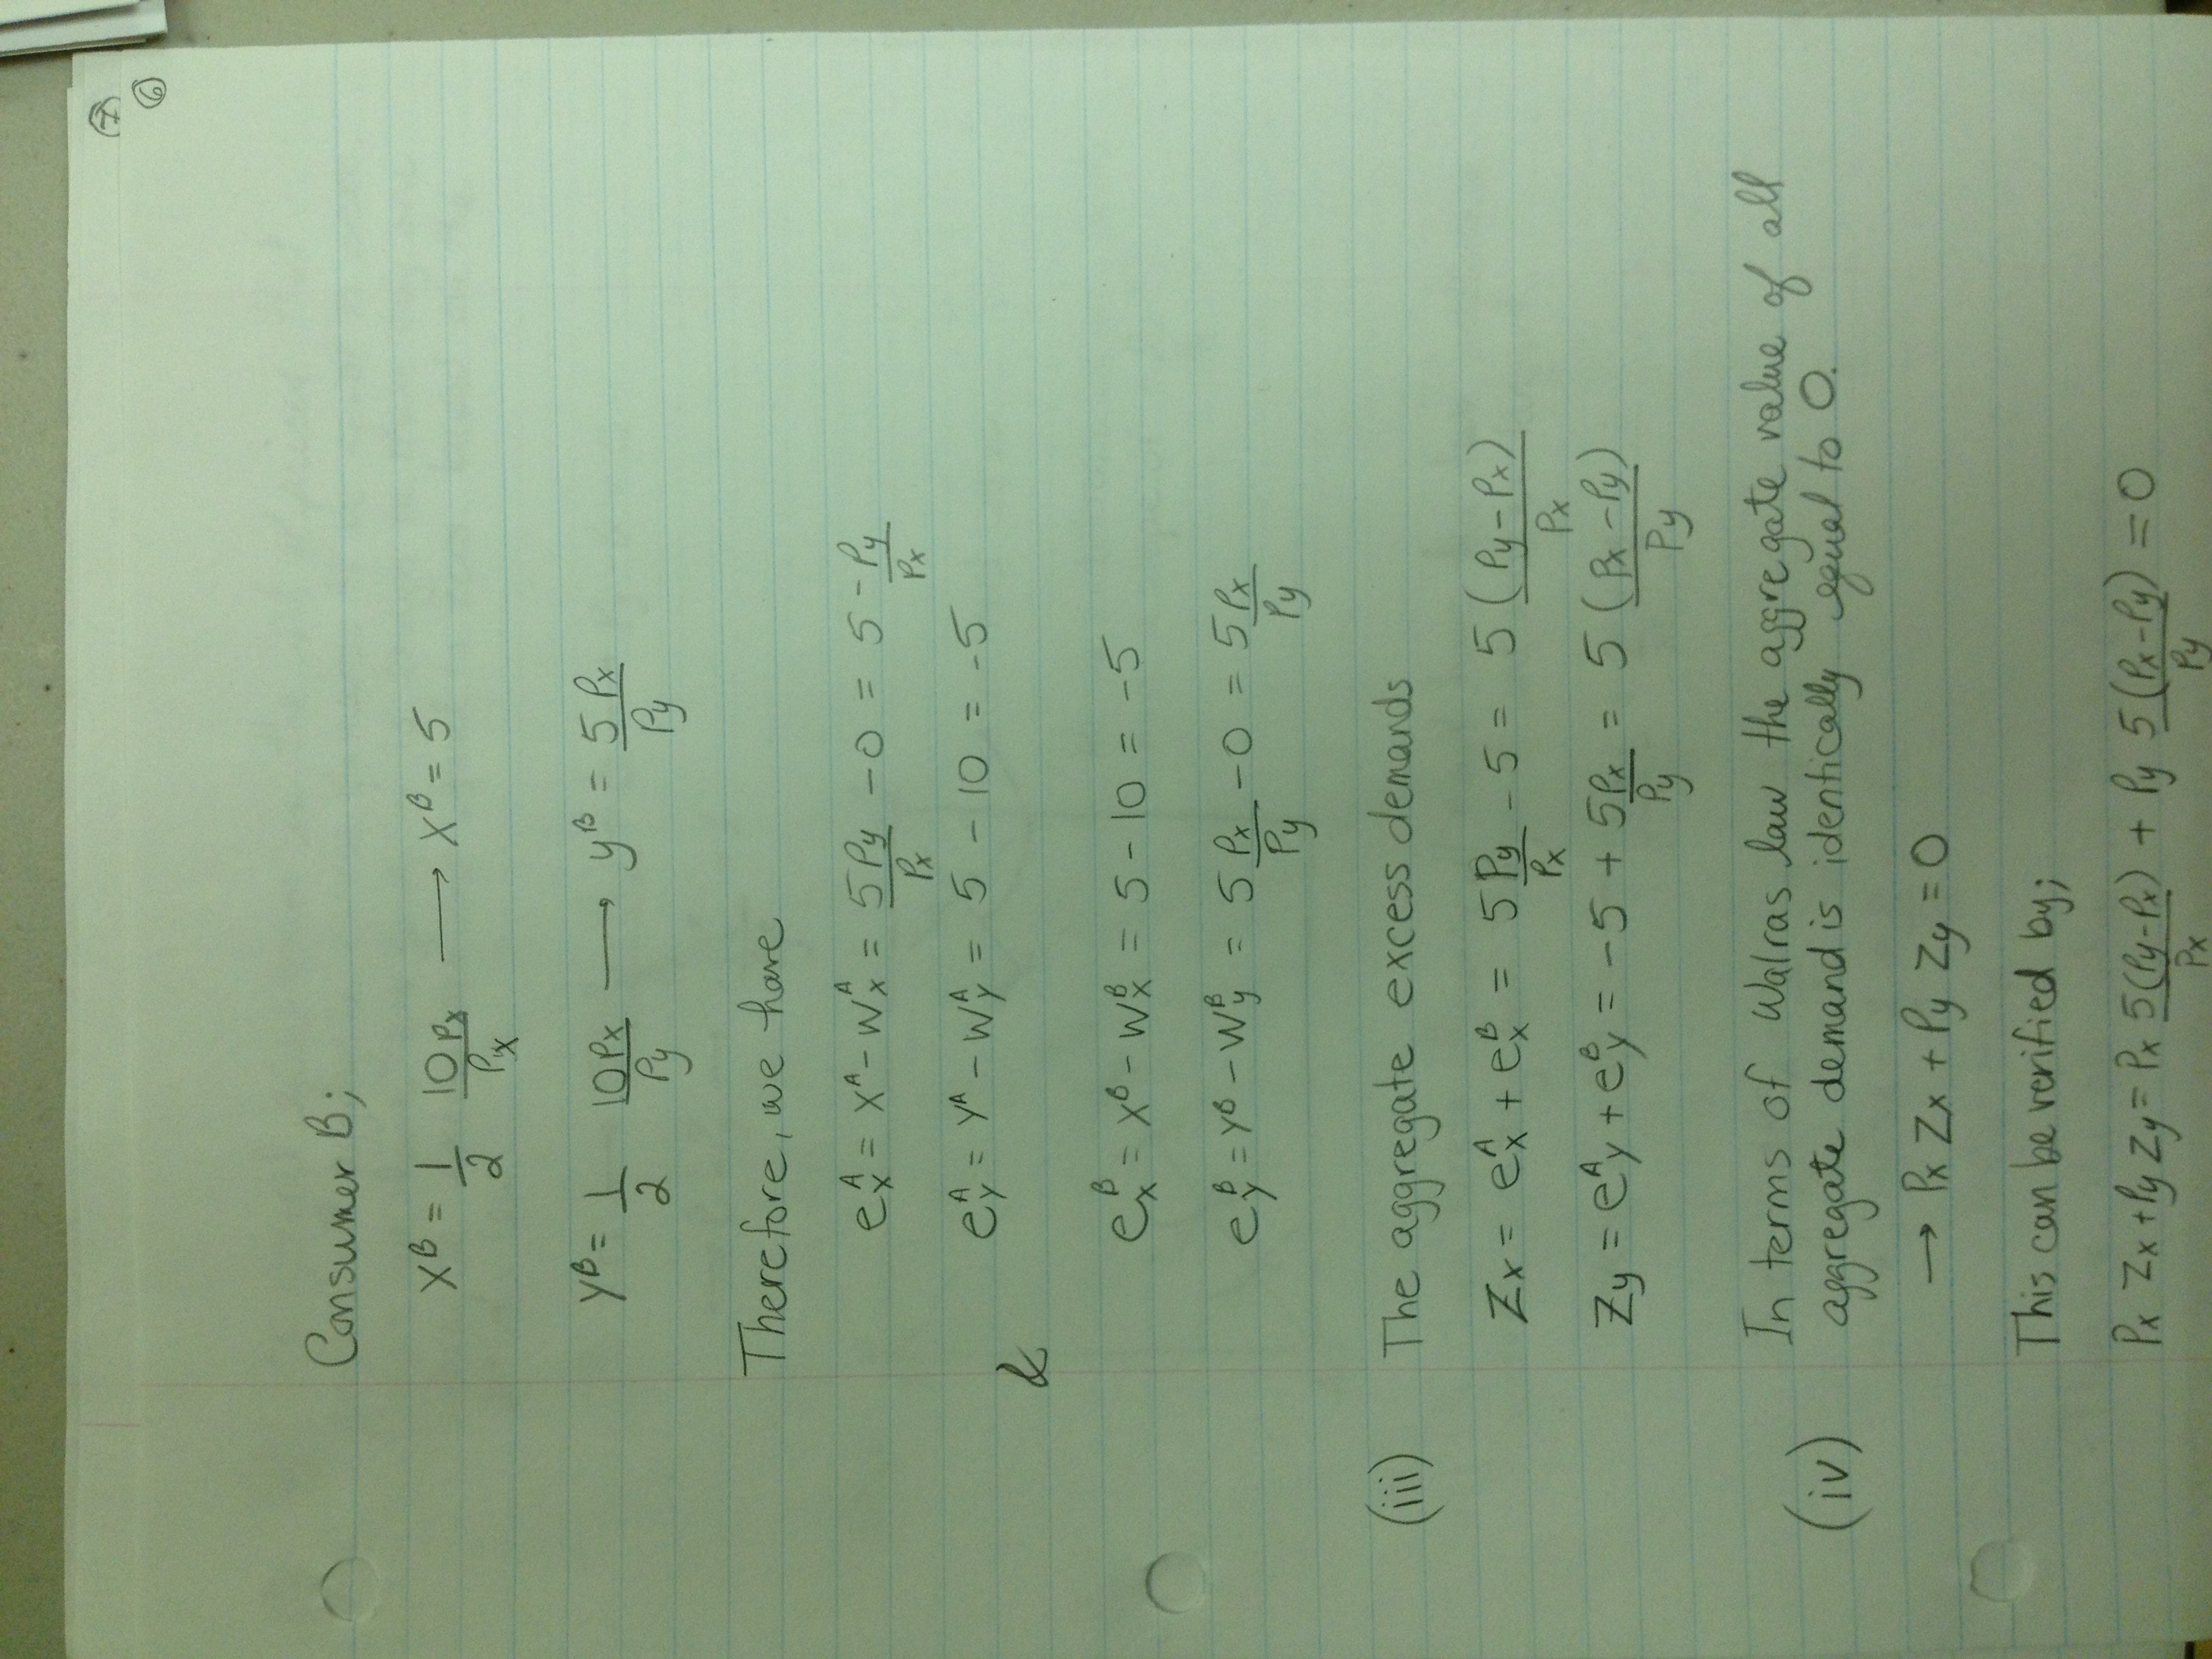 (7)
(6)
Consumer B;
x^B = 1/2 10Px/Px → x^B = 5
y^B = 1/2 10Px/Py → y^B = 5 Px/Py
Therefore, we have
e_x^A = x^A - w_x^A = 5Py/Px - 0 = 5 - Py/Px
e_y^A = y^A - w_y^A = 5 - 10 = -5
&
e_x^B = x^B - w_x^B = 5 - 10 = -5
e_y^B = y^B - w_y^B = 5 Px/Py - 0 = 5 Px/Py
(iii) The aggregate excess demands
Zx = e_x^A + e_x^B = 5 Py/Px - 5 = 5 (Py-Px)/Px
Zy = e_y^A + e_y^B = -5 + 5Px/Py = 5 (Px-Py)/Py
(iv) In terms of Walras law the aggregate value of all
aggregate demand is identically equal to 0.
→ Px Zx + Py Zy = 0
This can be verified by;
Px Zx + Py Zy = Px 5(Py-Px)/Px + Py 5(Px-Py)/Py = 0